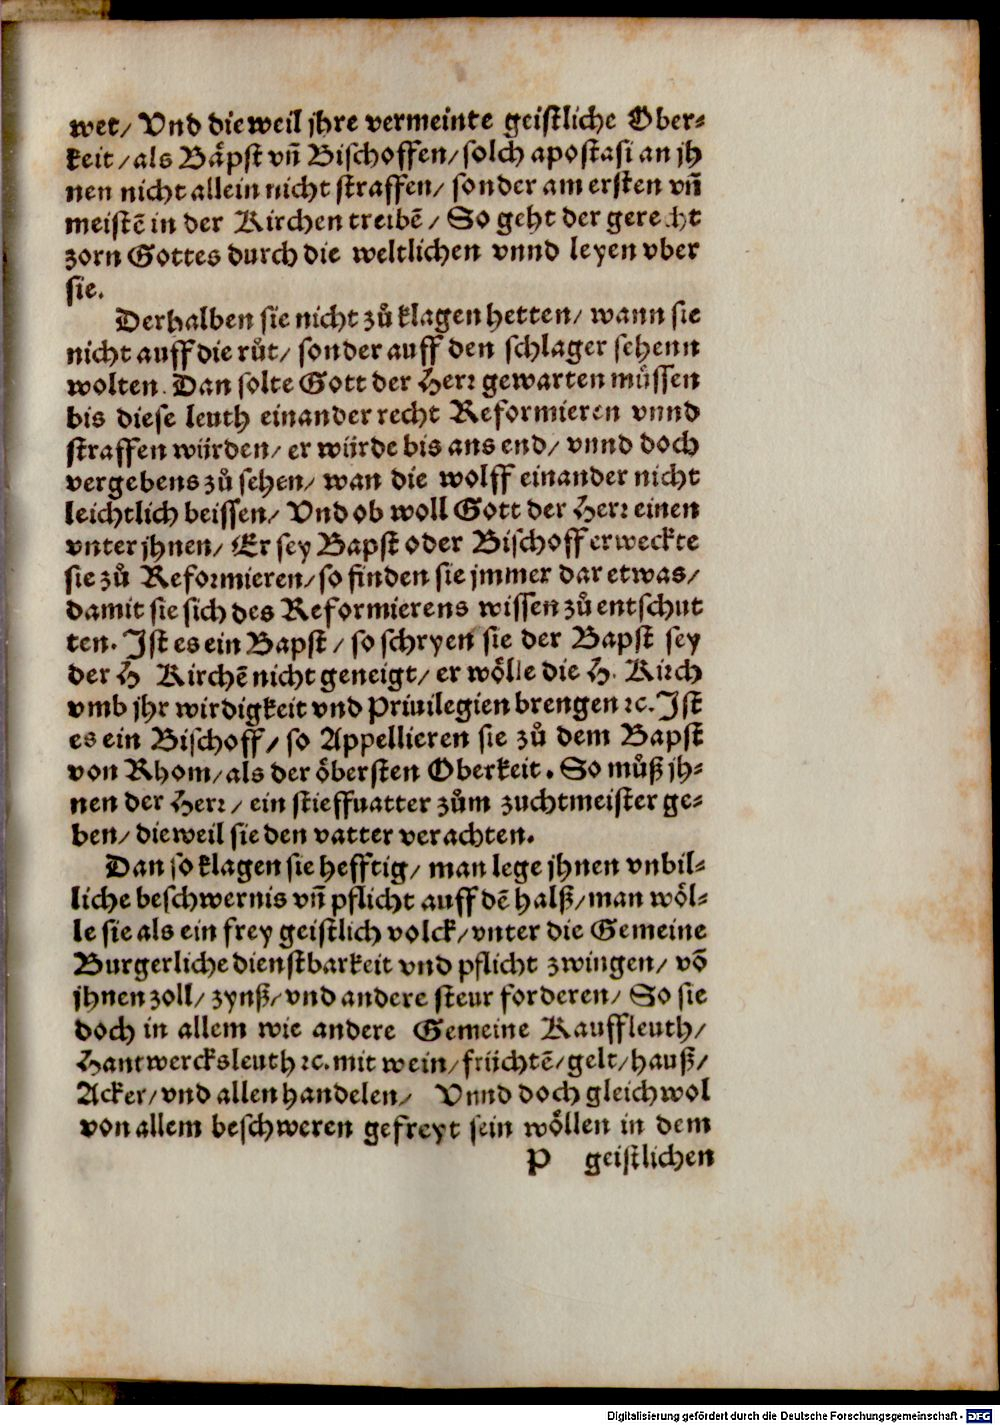 wet/ Vnd dieweil jhre vermeinte geistliche Ober-
keit/als Bäpst vn̄ Bischoffen/solch apostasi an jh
nen nicht allein nicht straffen/ sonder am ersten vn̄
meistē in der Kirchen treibē/ So geht der gerecht
zorn Gottes durch die weltlichen vnnd leyen vber
sie.
Derhalben sie nicht zů klagen hetten/ wann sie
nicht auff die růt/ sonder auff den schlager sehenn
wolten. Dan solte Gott der Herr gewarten müssen
bis diese leuth einander recht Reformieren vnnd
straffen würden/ er würde bis ans end/ vnnd doch
vergebens zů sehen/ wan die wolff einander nicht
leichtlich beissen/ Vnd ob woll Gott der Herr einen
vnter jhnen/ Er sey Bapst oder Bischoff erweckte
sie zů Reformieren/so finden sie jmmer dar etwas/
damit sie sich des Reformierens wissen zů entschut
ten. Ist es ein Bapst/ so schryen sie der Bapst sey
der H Kirchē nicht geneigt/ er wölle die H. Kirch
vmb jhr wirdigkeit vnd Priuilegien brengen ꝛc. Ist
es ein Bischoff/ so Appellieren sie zů dem Bapst
von Rhom/als der öbersten Oberkeit. So můß jh-
nen der Herr/ ein stieffuatter zům zuchtmeister ge-
ben/ dieweil sie den vatter verachten.
Dan so klagen sie hefftig/ man lege jhnen vnbil-
liche beschwernis vn̄ pflicht auff dē halß/man wöl-
le sie als ein frey geistlich volck/vnter die Gemeine
Burgerliche dienstbarkeit vnd pflicht zwingen/ vō
jhnen zoll/ zynß/vnd andere steur forderen/ So sie
doch in allem wie andere Gemeine Kauffleuth/
Hantwercksleuth ꝛc. mit wein/früchtē/gelt/hauß/
Acker/vnd allen handelen/ Vnnd doch gleichwol
von allem beschweren gefreyt sein wöllen in dem
P geistlichen
Digitalisierung gefördert durch die Deutsche Forschungsgemeinschaft - DFG